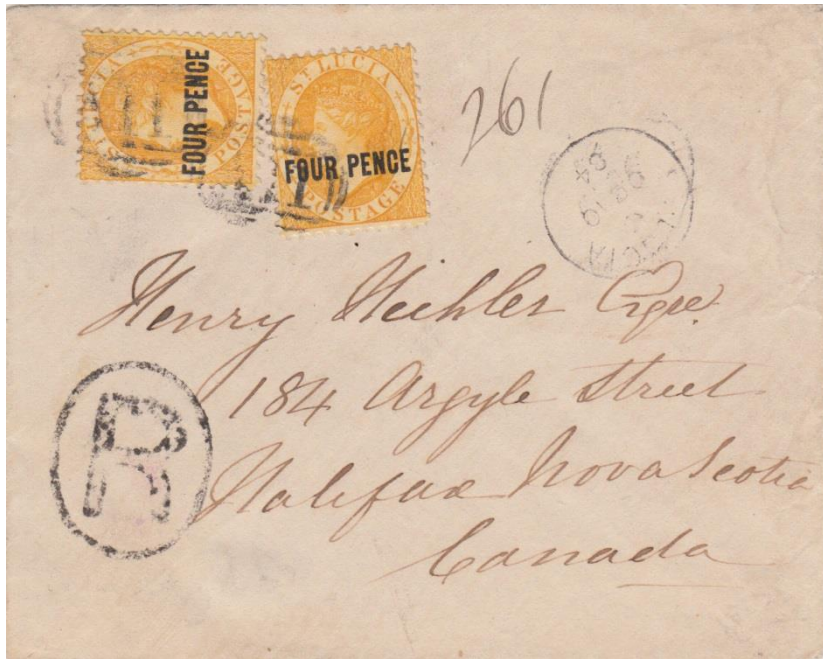 ST LUCIA
FOUR PENCE
POSTAGE
ST LUCIA
FOUR PENCE
POSTAGE
261
LUCIA
94
Henry
184 Argyle Street
Halifax Nova Scotia
Canada
R